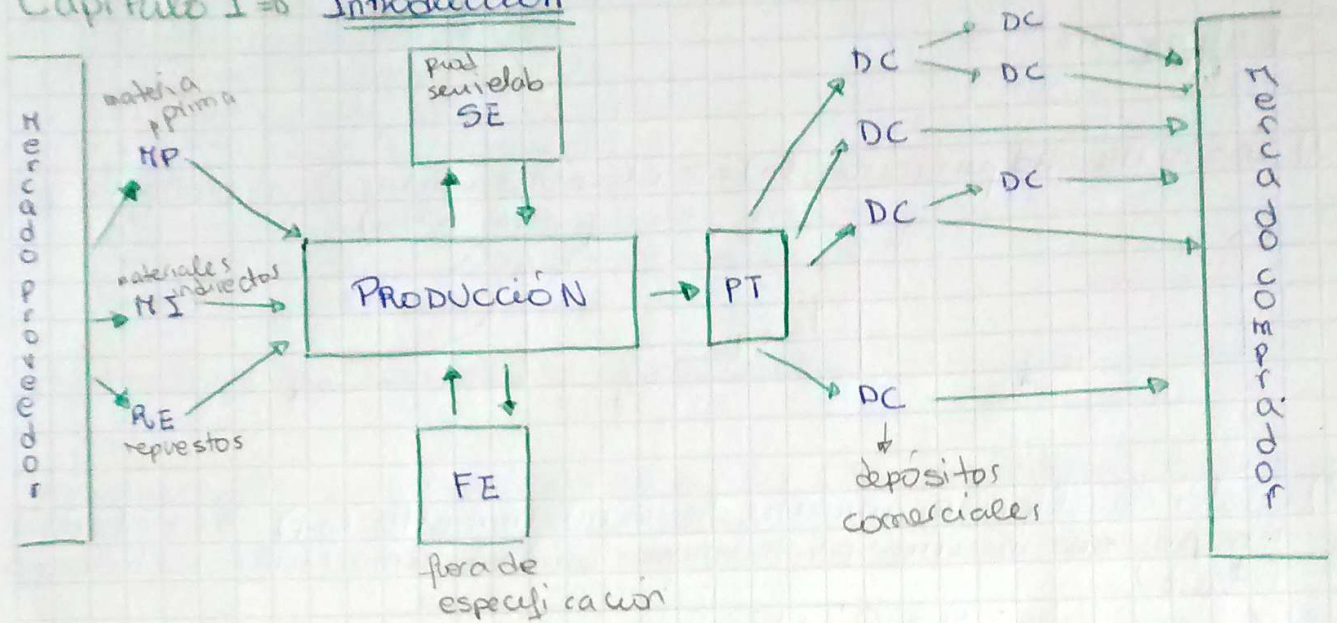 Capítulo I => Introducción
Mercado proveedor
materia
prima
MP
materiales
indirectos
MI
RE
repuestos
prod
semielab
SE
PRODUCCIÓN
FE
fuera de
especificación
PT
DC
DC
DC
DC
DC
DC
DC
depósitos
comerciales
Mercado comprador